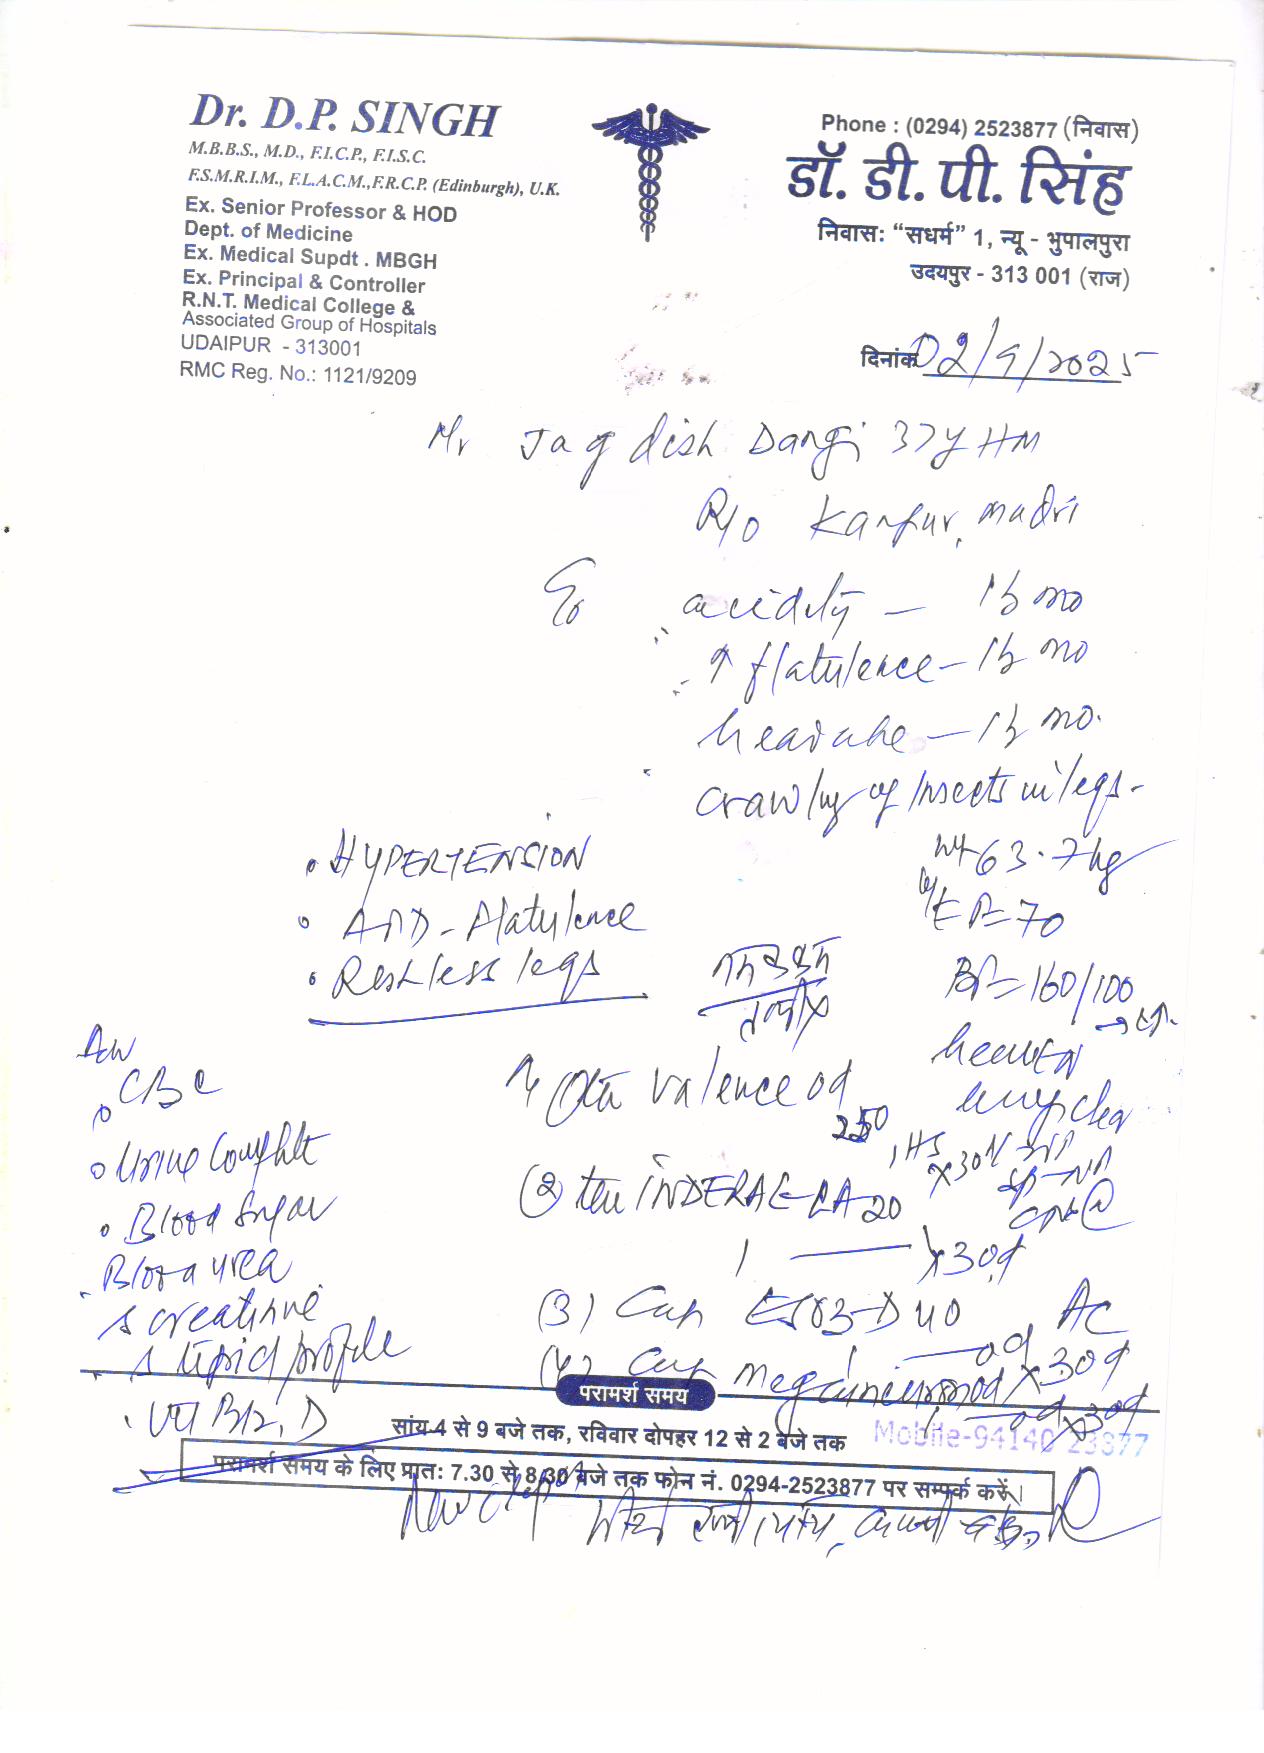 Dr. D.P. SINGH
M.B.B.S., M.D., F.I.C.P., F.I.S.C.
F.S.M.R.I.M., F.L.A.C.M.,F.R.C.P. (Edinburgh), U.K.
Ex. Senior Professor & HOD
Dept. of Medicine
Ex. Medical Supdt . MBGH
Ex. Principal & Controller
R.N.T. Medical College &
Associated Group of Hospitals
UDAIPUR - 313001
RMC Reg. No.: 1121/9209
Phone : (0294) 2523877 (निवास)
डॉ. डी. पी. सिंह
निवास: “सधर्म” 1, न्यू - भुपालपुरा
उदयपुर - 313 001 (राज)
दिनांक 02/9/2025
Mr Jagdish Dangi 37y HM
R/o Kanpur, madri
acidity -
↑ flatulence -
headache -
crawling of insects in legs -
• HYPERTENSION
• APD - flatulence
• Restless legs
wt 63.7kg
P = 70
BP = 160/100
Adv
CBC
Urine Complt
Blood Sugar
Blood urea
s creatinine
s lipid profile
Vit B12, D
valence od
250
(2) INDERAL-LA 20
1 — x30d
(3) Cap ESOZ-D 40 AC
od x30d
(4) Cap Meganeuron od
x30d
परामर्श समय
सांय 4 से 9 बजे तक, रविवार दोपहर 12 से 2 बजे तक
Mobile-94140 23877
परामर्श समय के लिए प्रात: 7.30 से 8.30 बजे तक फोन नं. 0294-2523877 पर सम्पर्क करें।